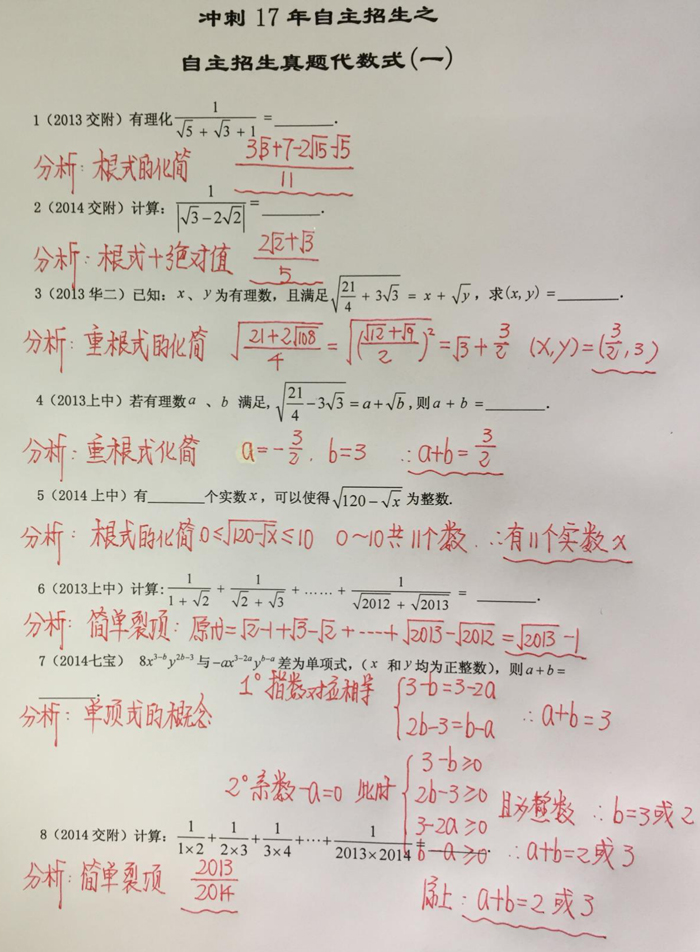 冲刺 17 年自主招生之
自主招生真题代数式(一)
1（2013 交附）有理化 1/(√5 + √3 + 1) = ______.
分析：根式的化简 (3√3+7-2√15-√5)/11
2（2014 交附）计算： 1/|√3-2√2| = ______.
分析：根式+绝对值 (2√2+√3)/5
3（2013 华二）已知：x、y 为有理数，且满足 √(21/4 + 3√3) = x + √y，求(x, y) = ______.
分析：重根式的化简 √((21+2√108)/4) = √(((√12+√9)/2)²) = √3 + 3/2 (x,y)=(3/2,3)
4（2013上中）若有理数 a 、b 满足, √(21/4 - 3√3) = a + √b ,则 a + b = ______.
分析：重根式化简 a=-3/2 . b=3 ∴a+b=3/2
5（2014 上中）有______个实数 x，可以使得 √(120-√x) 为整数.
分析：根式的化简 0≤√(120-√x)≤10 0~10共11个数. ∴有11个实数x
6（2013上中）计算: 1/(1+√2) + 1/(√2+√3) + …… + 1/(√2012+√2013) = ______.
分析：简单裂项：原式=√2-1+√3-√2+----+√2013-√2012=√2013-1
7（2014七宝） 8x^(3-b)y^(2b-3) 与 -ax^(3-2a)y^(b-a) 差为单项式，（x 和 y 均为正整数），则 a+b =
______.
1° 指数对应相等 { 3-b=3-2a
2b-3=b-a ∴a+b=3
分析：单项式的概念
2° 系数-a=0 此时 { 3-b≥0
2b-3≥0
3-2a≥0
b-a≥0
且为整数 ∴b=3或2
∴a+b=2或3
8（2014 交附）计算： 1/(1×2) + 1/(2×3) + 1/(3×4) + ⋯ + 1/(2013×2014) = ______.
分析：简单裂项 2013/2014
综上：a+b=2或3